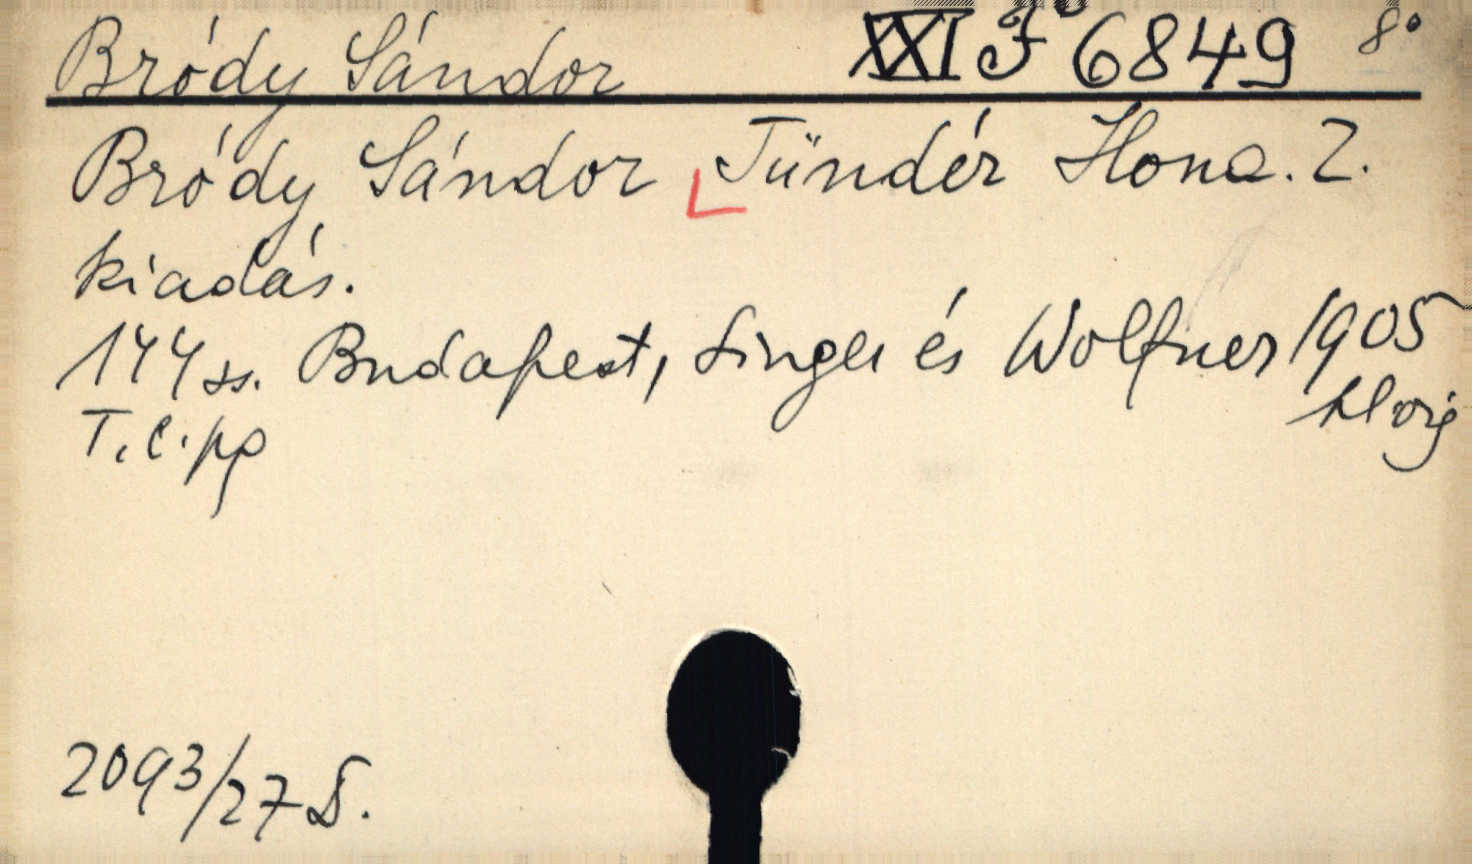 Bródy Sándor XXI F° 6849 8°
Bródy Sándor Tündér Ilona. 2.
kiadás.
144 ss. Budapest, Singer és Wolfner 1905
T. C. pp
2093/27 S.